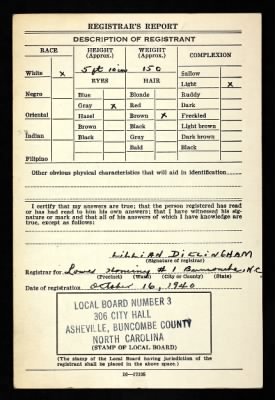 REGISTRAR'S REPORT
DESCRIPTION OF REGISTRANT
RACE HEIGHT (Approx.) WEIGHT (Approx.) COMPLEXION
White x 5 ft 10 in 150 Sallow
EYES HAIR Light x
Negro Blue Blonde Ruddy
Gray x Red Dark
Oriental Hazel Brown x Freckled
Brown Black Light brown
Indian Black Gray Dark brown
Bald Black
Filipino
Other obvious physical characteristics that will aid in identification
I certify that my answers are true; that the person registered has read or has had read to him his own answers; that I have witnessed his signature or mark and that all of his answers of which I have knowledge are true, except as follows:
Lillian Dillingham
(Signature of registrar)
Registrar for Lower Hominy # 1 Buncombe, N.C.
(Precinct) (Ward) (City or County) (State)
Date of registration October 16, 1940
LOCAL BOARD NUMBER 3
306 CITY HALL
ASHEVILLE, BUNCOMBE COUNTY
NORTH CAROLINA
(STAMP OF LOCAL BOARD)
(The stamp of the Local Board having jurisdiction of the registrant shall be placed in the above space.)